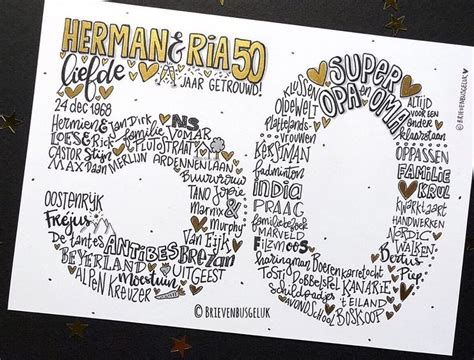 HERMAN & RIA 50
JAAR GETROUWD!
liefde
24 dec 1968
Hermien & Jan Dirk
NS
LOURAS
familie VOLMAR
LUCK Stijn
FLUTOSTRAAT
CASTOR
MAX Daan MERLIJN ARDENNENLAAN
Buurvrouw
TANO Jopie
Marnix &
Murphy
Van Eijk
OOSTENRIJK
Fréjus
De tantes ANTIBES Brezan
BEYERLAND
UITGEEST
Moestuin
ALPEN KREUZER
KLUSSEN
SUPER
OPA en OMA
ALTIJD
voor een
ander
klaarstaan
OLDEWELT
Plattelands-
vrouwen
KERSMAN
badminton
India
PRAAG
MARVELD
Filzmoos
haringman Boeren karretocht
TOSTI Dobbelspel KANARIE
Schildpadjes
't EILAND
AVONDSCHOOL
BOSKOOP
OPPASSEN
FAMILIE
KRUL
KWARKTAART
HANDWERKEN
NORDIC
WALKEN
Bertus
Piep
© BRIEVENBUSGELUK
© BRIEVENBUSGELUK